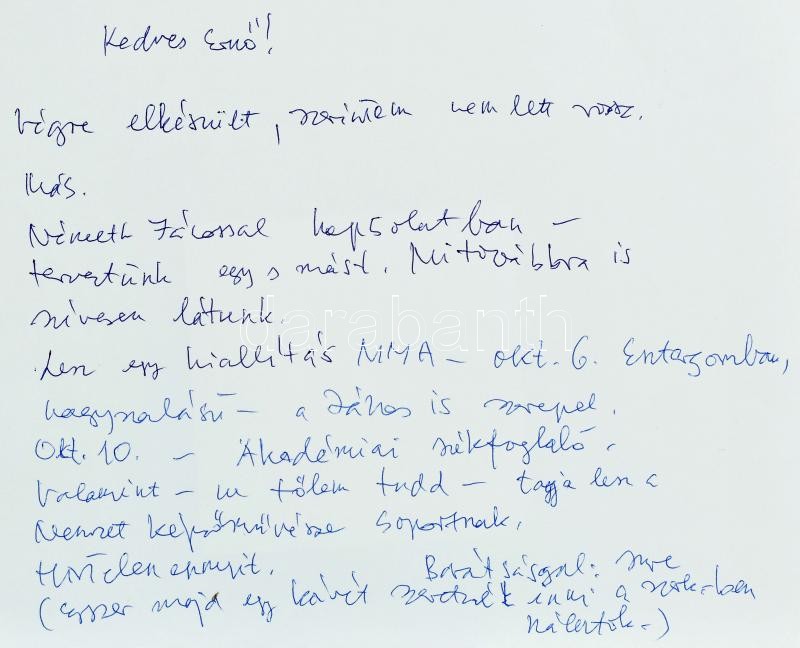 Kedves Ernő!
Végre elkészült, szerintem nem lett rossz.
Más.
Németh Jánossal kapcsolatban –
terveztünk egy s mást. Mi továbbra is
szívesen látunk.
darabanth
Lesz egy kiállítás MMA – okt. 6. Esztergomban,
nagyszabású – a János is szerepel.
Okt. 10. – Akadémiai székfoglaló.
Valamint – ne tőlem tudd – tagja lesz a
Nemzet képzőművésze csoportnak.
Hirtelen ennyit. Barátsággal: Imre
(egyszer majd egy kávét szeretnék inni a
nálatok.)